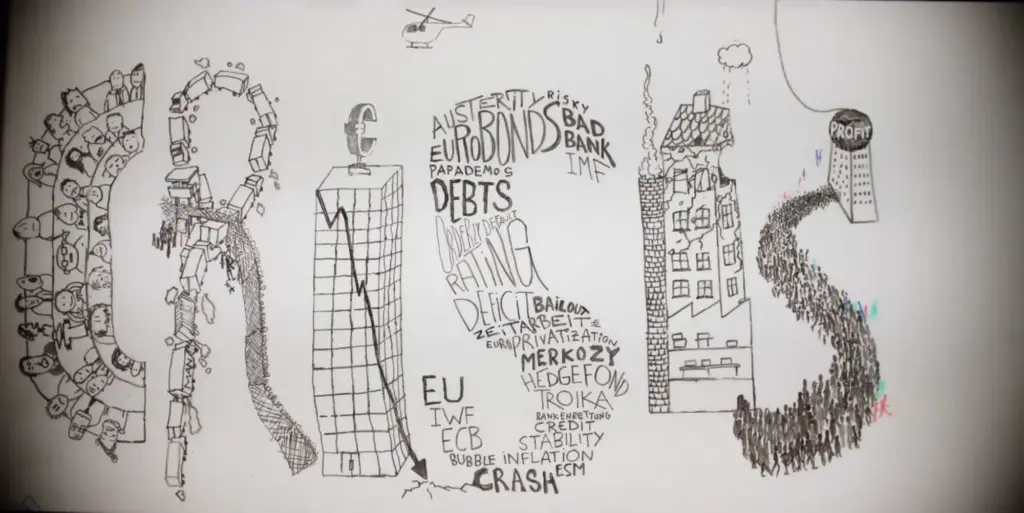 CRISIS
€
AUSTERITY RISKY
EUROBONDS BAD
BANK
PAPADEMOS IMF
DEBTS
ORDERLY DEFAULT
RATING
DEFICIT BAILOUT
ZEITARBEIT €
EURO PRIVATIZATION
MERKOZY
HEDGEFOND
TROIKA
BANKENRETTUNG
EU CREDIT
IWF STABILITY
ECB
BUBBLE INFLATION
ESM
CRASH
PROFIT